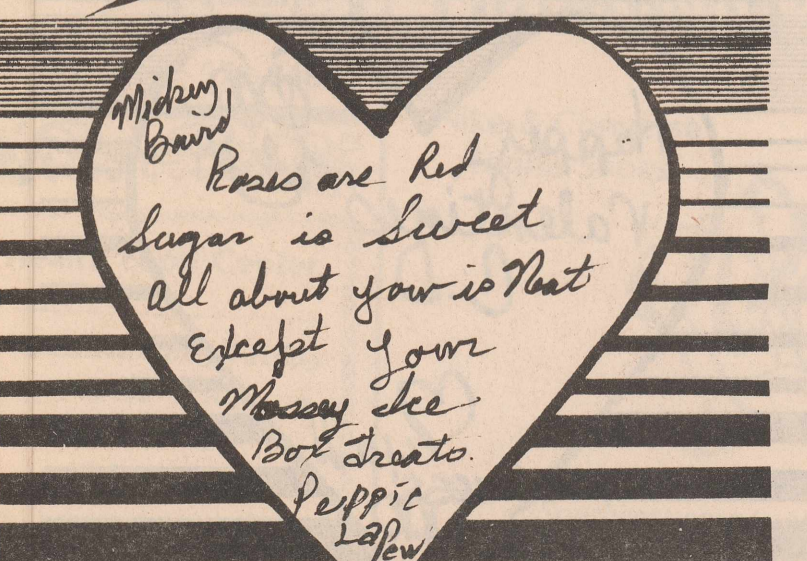 Mickey
Baird
Roses are Red
Sugar is Sweet
All about you is Neat
Except your
Mossey Ice
Box Treats.
Peppie
LaPew